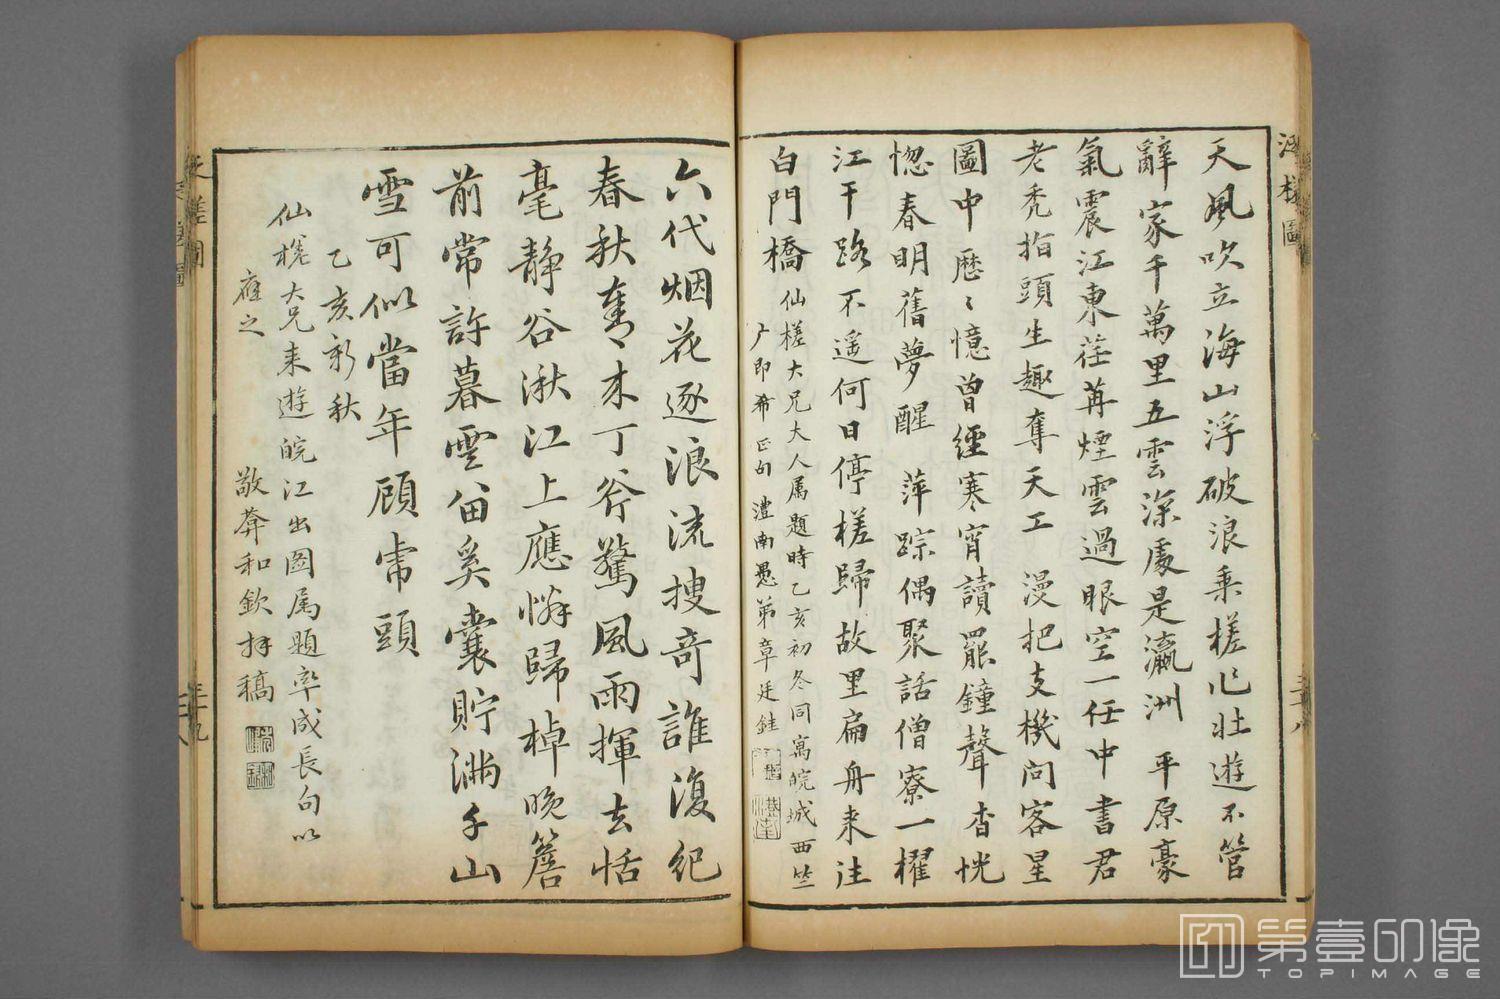 天風吹立海山浮破浪乘槎作壯遊不管
辭家千萬里五雲深處是瀛洲　平原豪
氣震江東荏苒煙雲過眼空一任中書君
老禿指頭生趣奪天工　漫把支機問客星
圖中歷々憶曾經寒宵讀罷鐘聲杳恍
惚春明舊夢醒　萍踪偶聚話僧寮一櫂
江干路不遥何日停槎歸故里扁舟來往
白門橋
仙槎大兄大人属題時乙亥初冬同寓皖城西竺
广即希正句　澧南愚弟章廷
六代烟花逐浪流搜奇誰復紀
春秋　木丁斧驚風雨揮去恬
毫静谷湫江上應憐歸棹晚簷
前常許暮雲留奚囊貯滿千山
雪可似當年顧虎頭
乙亥新秋
仙槎大兄来遊皖江出圖属題率成長句以
應之
敬　和欽拜稿
泛槎圖
第壹印像
TOPIMAGE